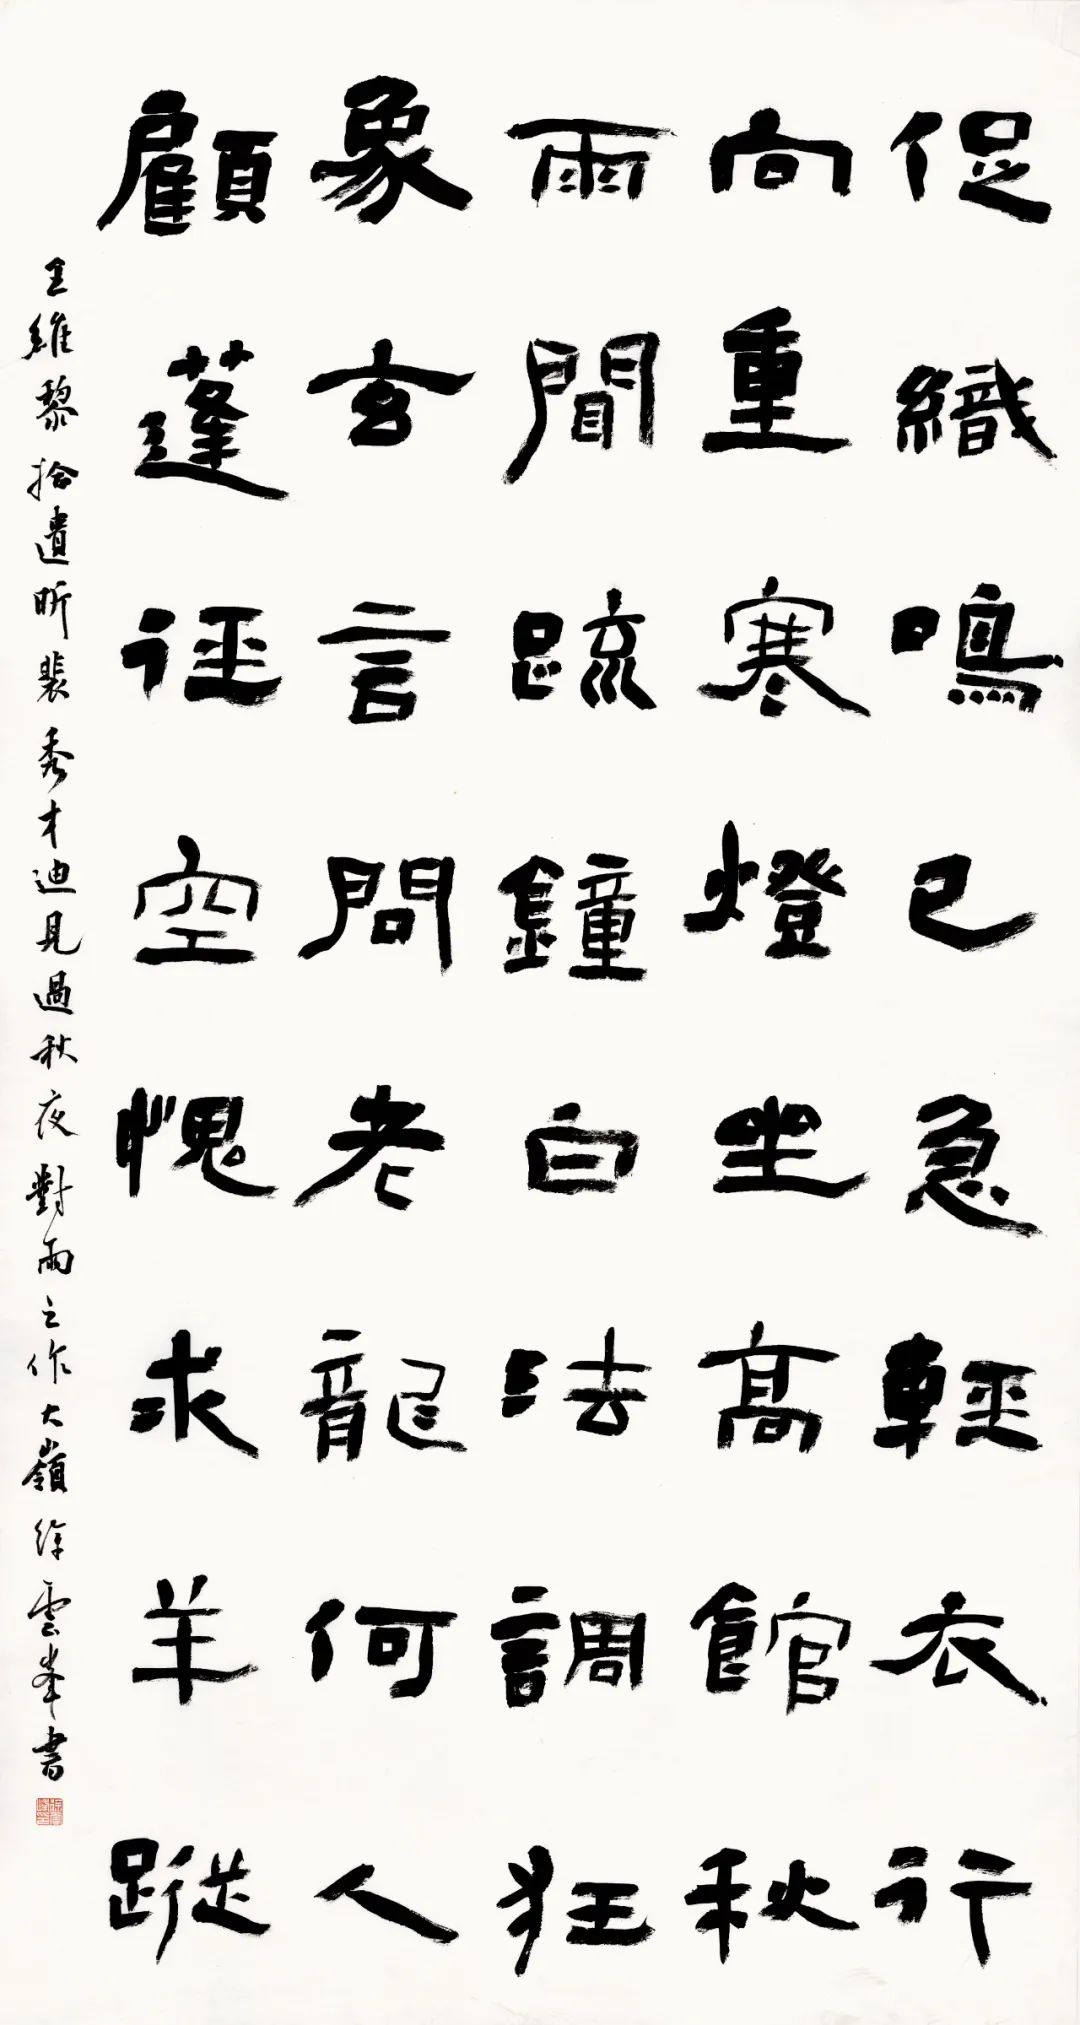 促織鳴已急輕衣行
向重寒燈坐高館秋
雨聞疏鐘白法調狂
象玄言問老龍何人
顧蓬徑空愧求羊蹤
王維黎拾遺昕裴秀才迪見過秋夜對雨之作大嶺徐雲峯書